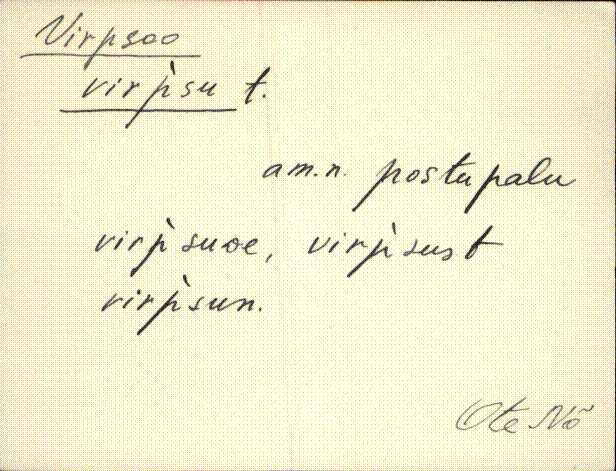 Virpsoo
virp̀su t.
am.n. postupalu
virp̀suoe, virp̀sust
virp̀sun.
Ote Nõ